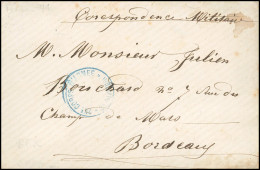 Corespondence Militaire
M. Monsieur Julien
Bouchard no 7 Rue du
Champ de Mars
Bordeaux